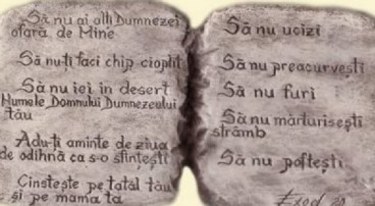 Să nu ai alți Dumnezei
afară de Mine
Să nu-ți faci chip cioplit
Să nu iei în desert
Numele Domnului Dumnezeului
tău
Adu-ți aminte de ziua
de odihnă ca s-o sfințești
Cinstește pe tatăl tău
și pe mama ta
Să nu ucizi
Să nu preacurvești
Să nu furi
Să nu mărturisești
strâmb
Să nu poftești
Exod